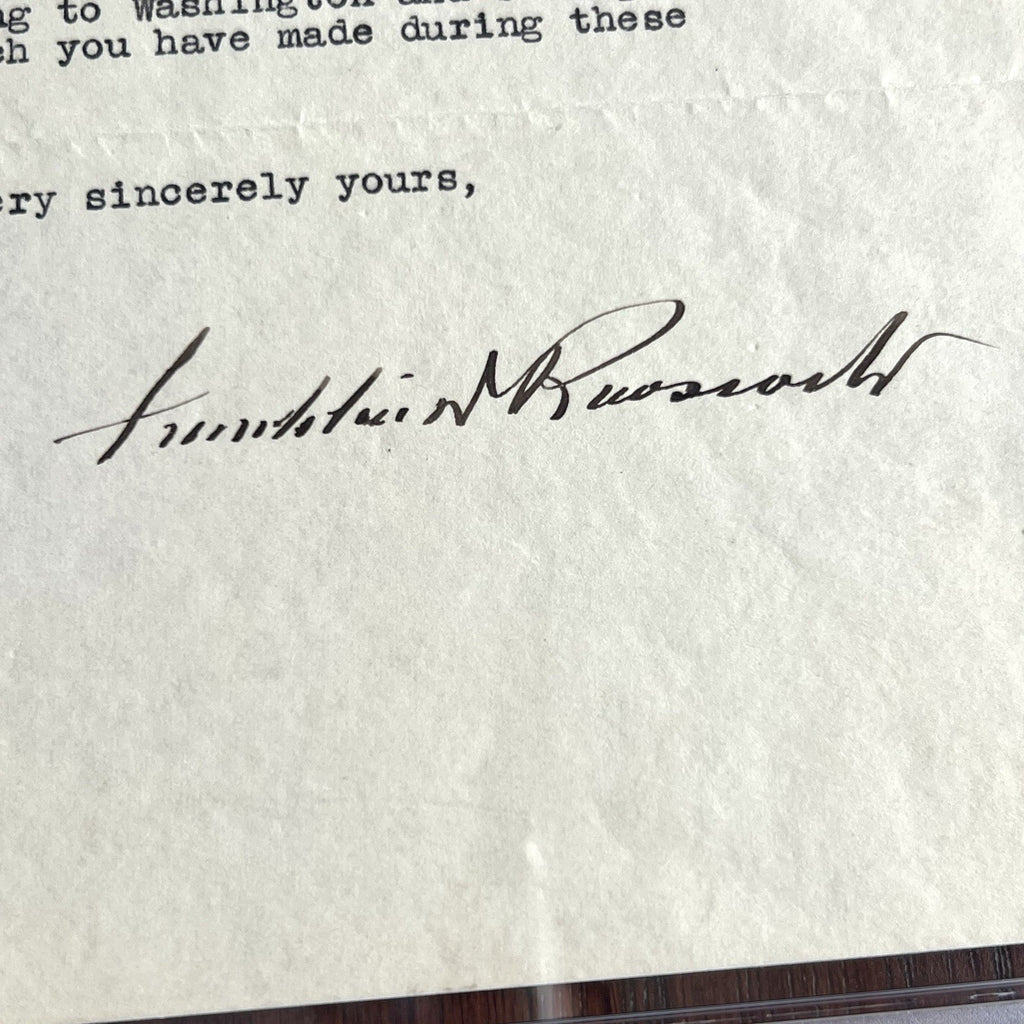 ng to Washington and
ch you have made during these
ery sincerely yours,
Franklin D Roosevelt